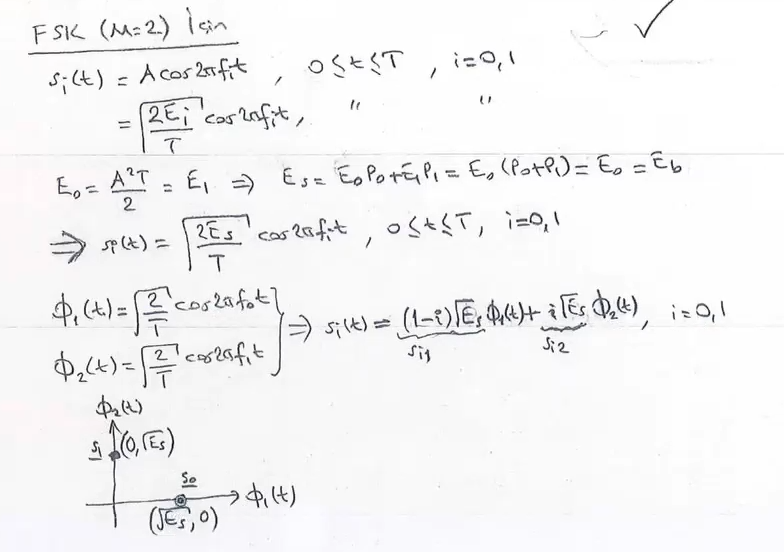 FSK (M=2) İçin
sᵢ(t) = A cos2πfᵢt , 0≤t≤T , i=0,1
= √(2Eᵢ/T) cos2πfᵢt, " "
E₀ = A²T/2 = E₁ ⇒ Eₛ = E₀P₀+E₁P₁ = E₀(P₀+P₁) = E₀ = E_b
⇒ sᵢ(t) = √(2Eₛ/T) cos2πfᵢt , 0≤t≤T, i=0,1
ϕ₁(t) = √(2/T) cos2πf₀t
ϕ₂(t) = √(2/T) cos2πf₁t
⇒ sᵢ(t) = (1-i)√Eₛ ϕ₁(t) + i√Eₛ ϕ₂(t), i=0,1
sᵢ₁ sᵢ₂
ϕ₂(t)
s₁ (0,√Eₛ)
s₀
ϕ₁(t)
(√Eₛ,0)